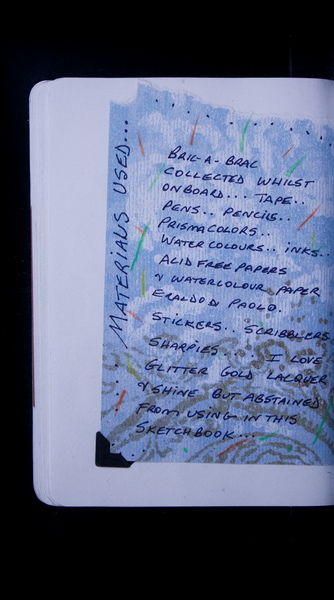 MATERIALS USED...
BRIC-A-BRAC
COLLECTED WHILST
ONBOARD... TAPE..
PENS.. PENCILS..
PRISMACOLORS..
WATERCOLOURS.. INKS..
ACID FREE PAPERS
N WATERCOLOUR PAPER
ERALDO DI PAOLO.
STICKERS.. SCRIBBLERS
SHARPIES... I LOVE
GLITTER GOLD LACQUER
N SHINE BUT ABSTAINED
FROM USING IN THIS
SKETCHBOOK...